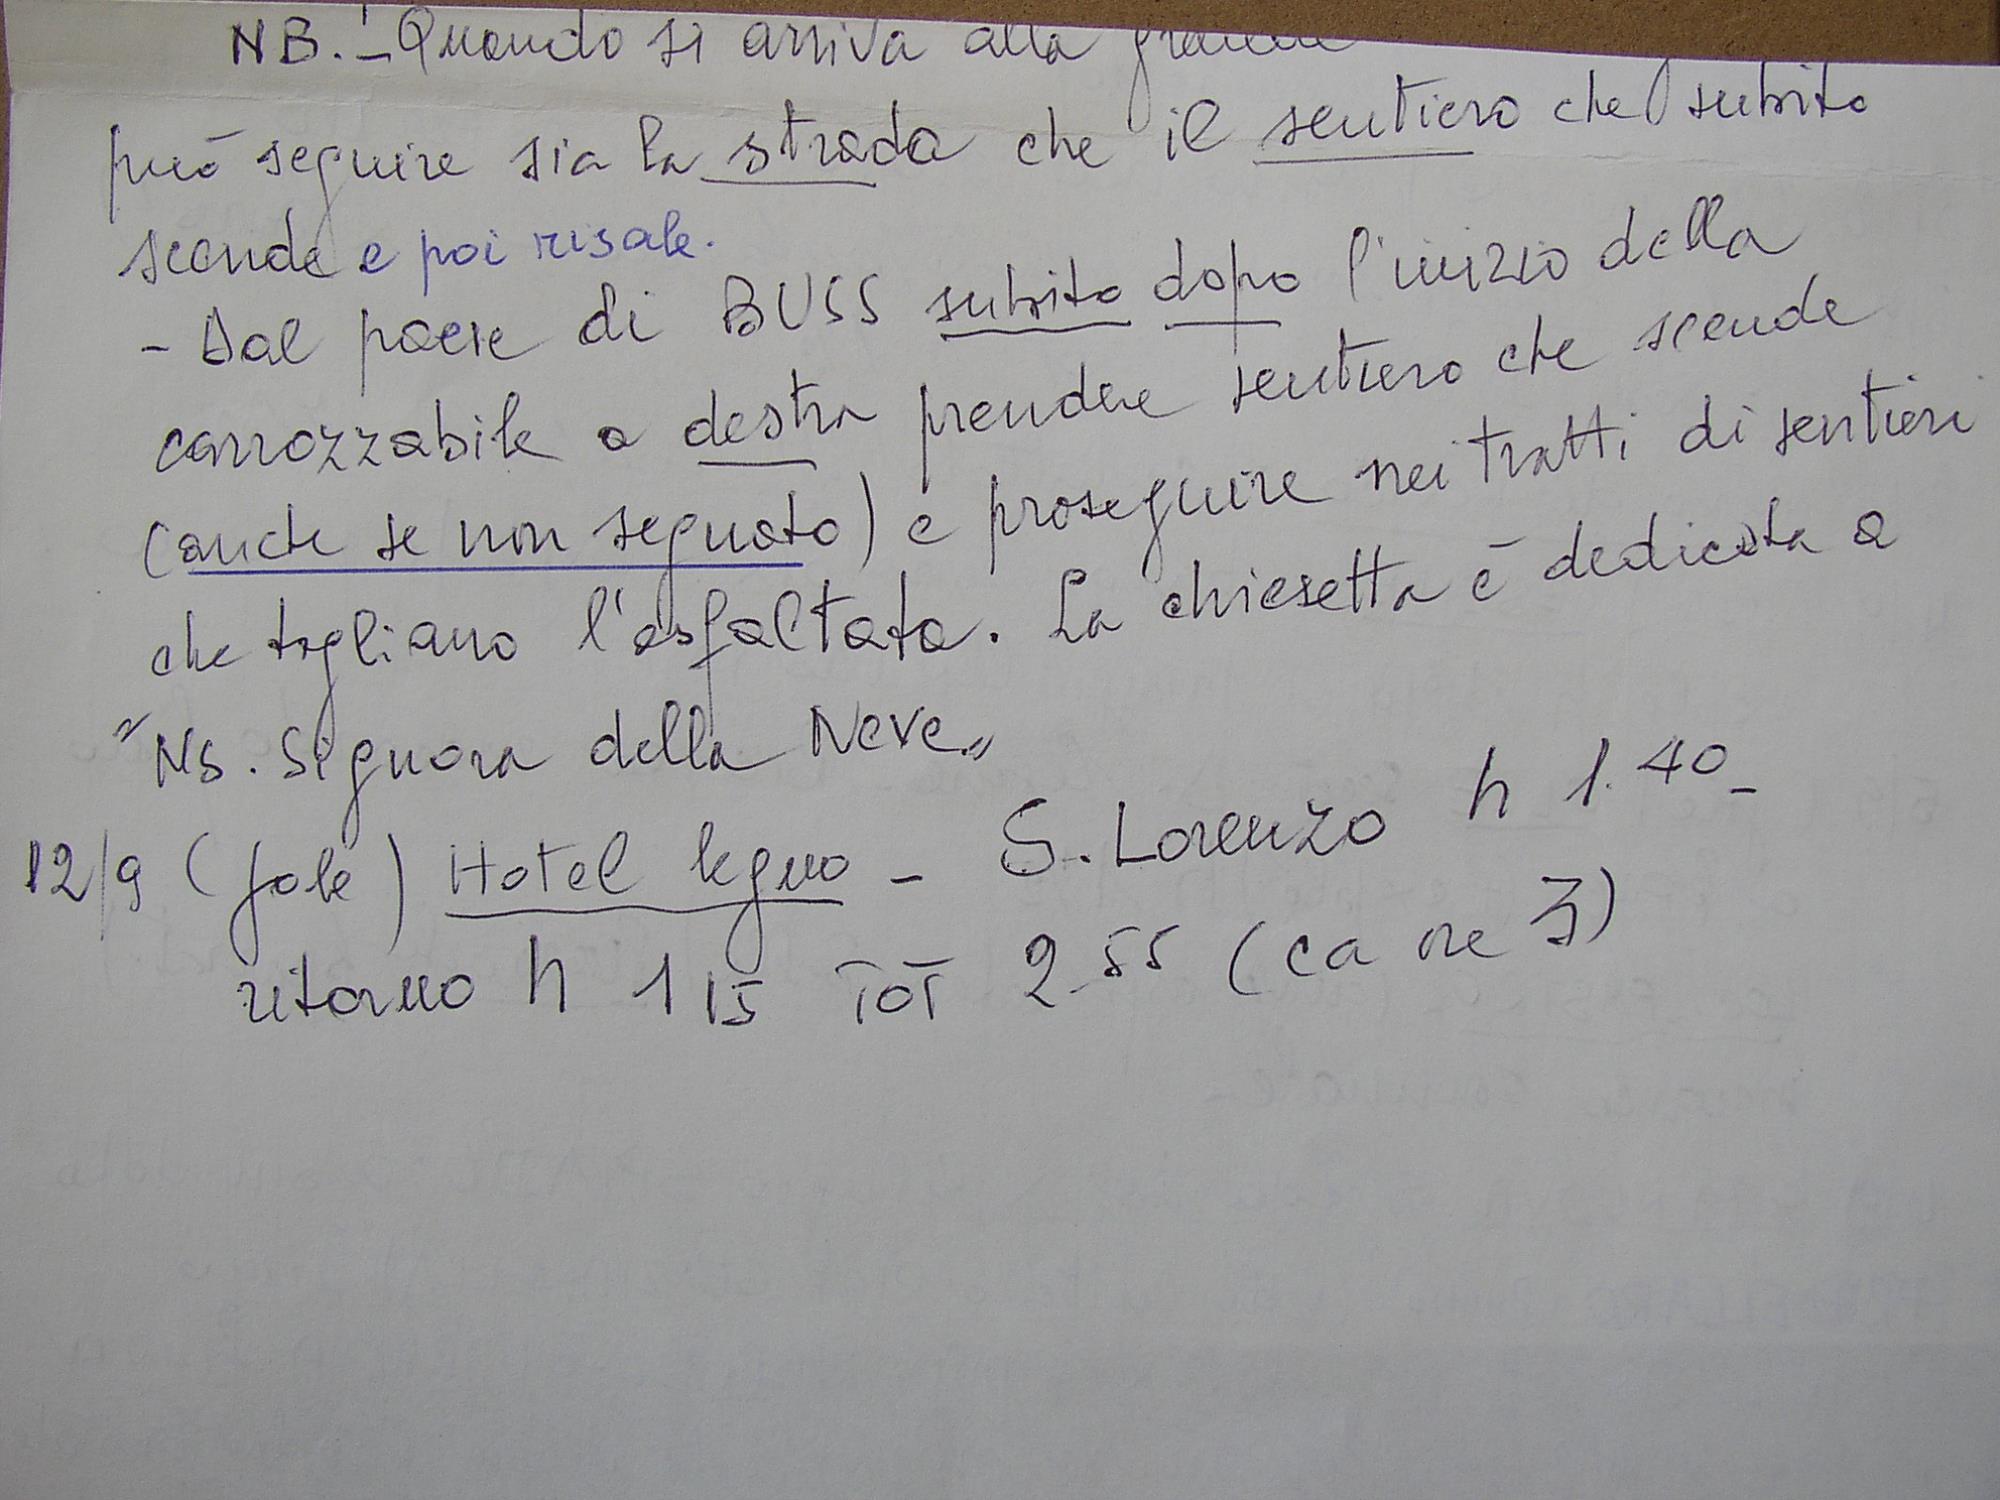 NB. - Quando si arriva alla
può seguire sia la strada che il sentiero che subito
scende e poi risale.
- Dal paese di BUSS subito dopo l'inizio della
carrozzabile a destra prendere sentiero che scende
(anche se non segnato) e proseguire nei tratti di sentieri
che togliano l'asfaltata. La chiesetta è dedicata a
"Ns. Signora della Neve"
12/9 (sole) Hotel legno - S. Lorenzo h 1.40-
ritorno h 1 15 TOT 2.55 (ca ore 3)